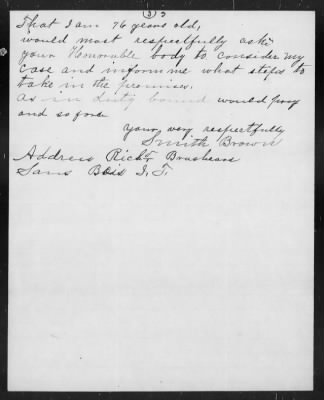 (3) 3
That I am 76 years old,
would most respectfully ask
your Honorable body to consider my
case and inform me what steps to
take in the premises.
As in Duty bound would pray
and so fore
Yours very respectfully
Smith Brown
Address Rich'd Brashears
Sans Bois I. T.